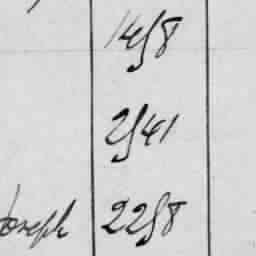 1458
2541
Joseph 2258